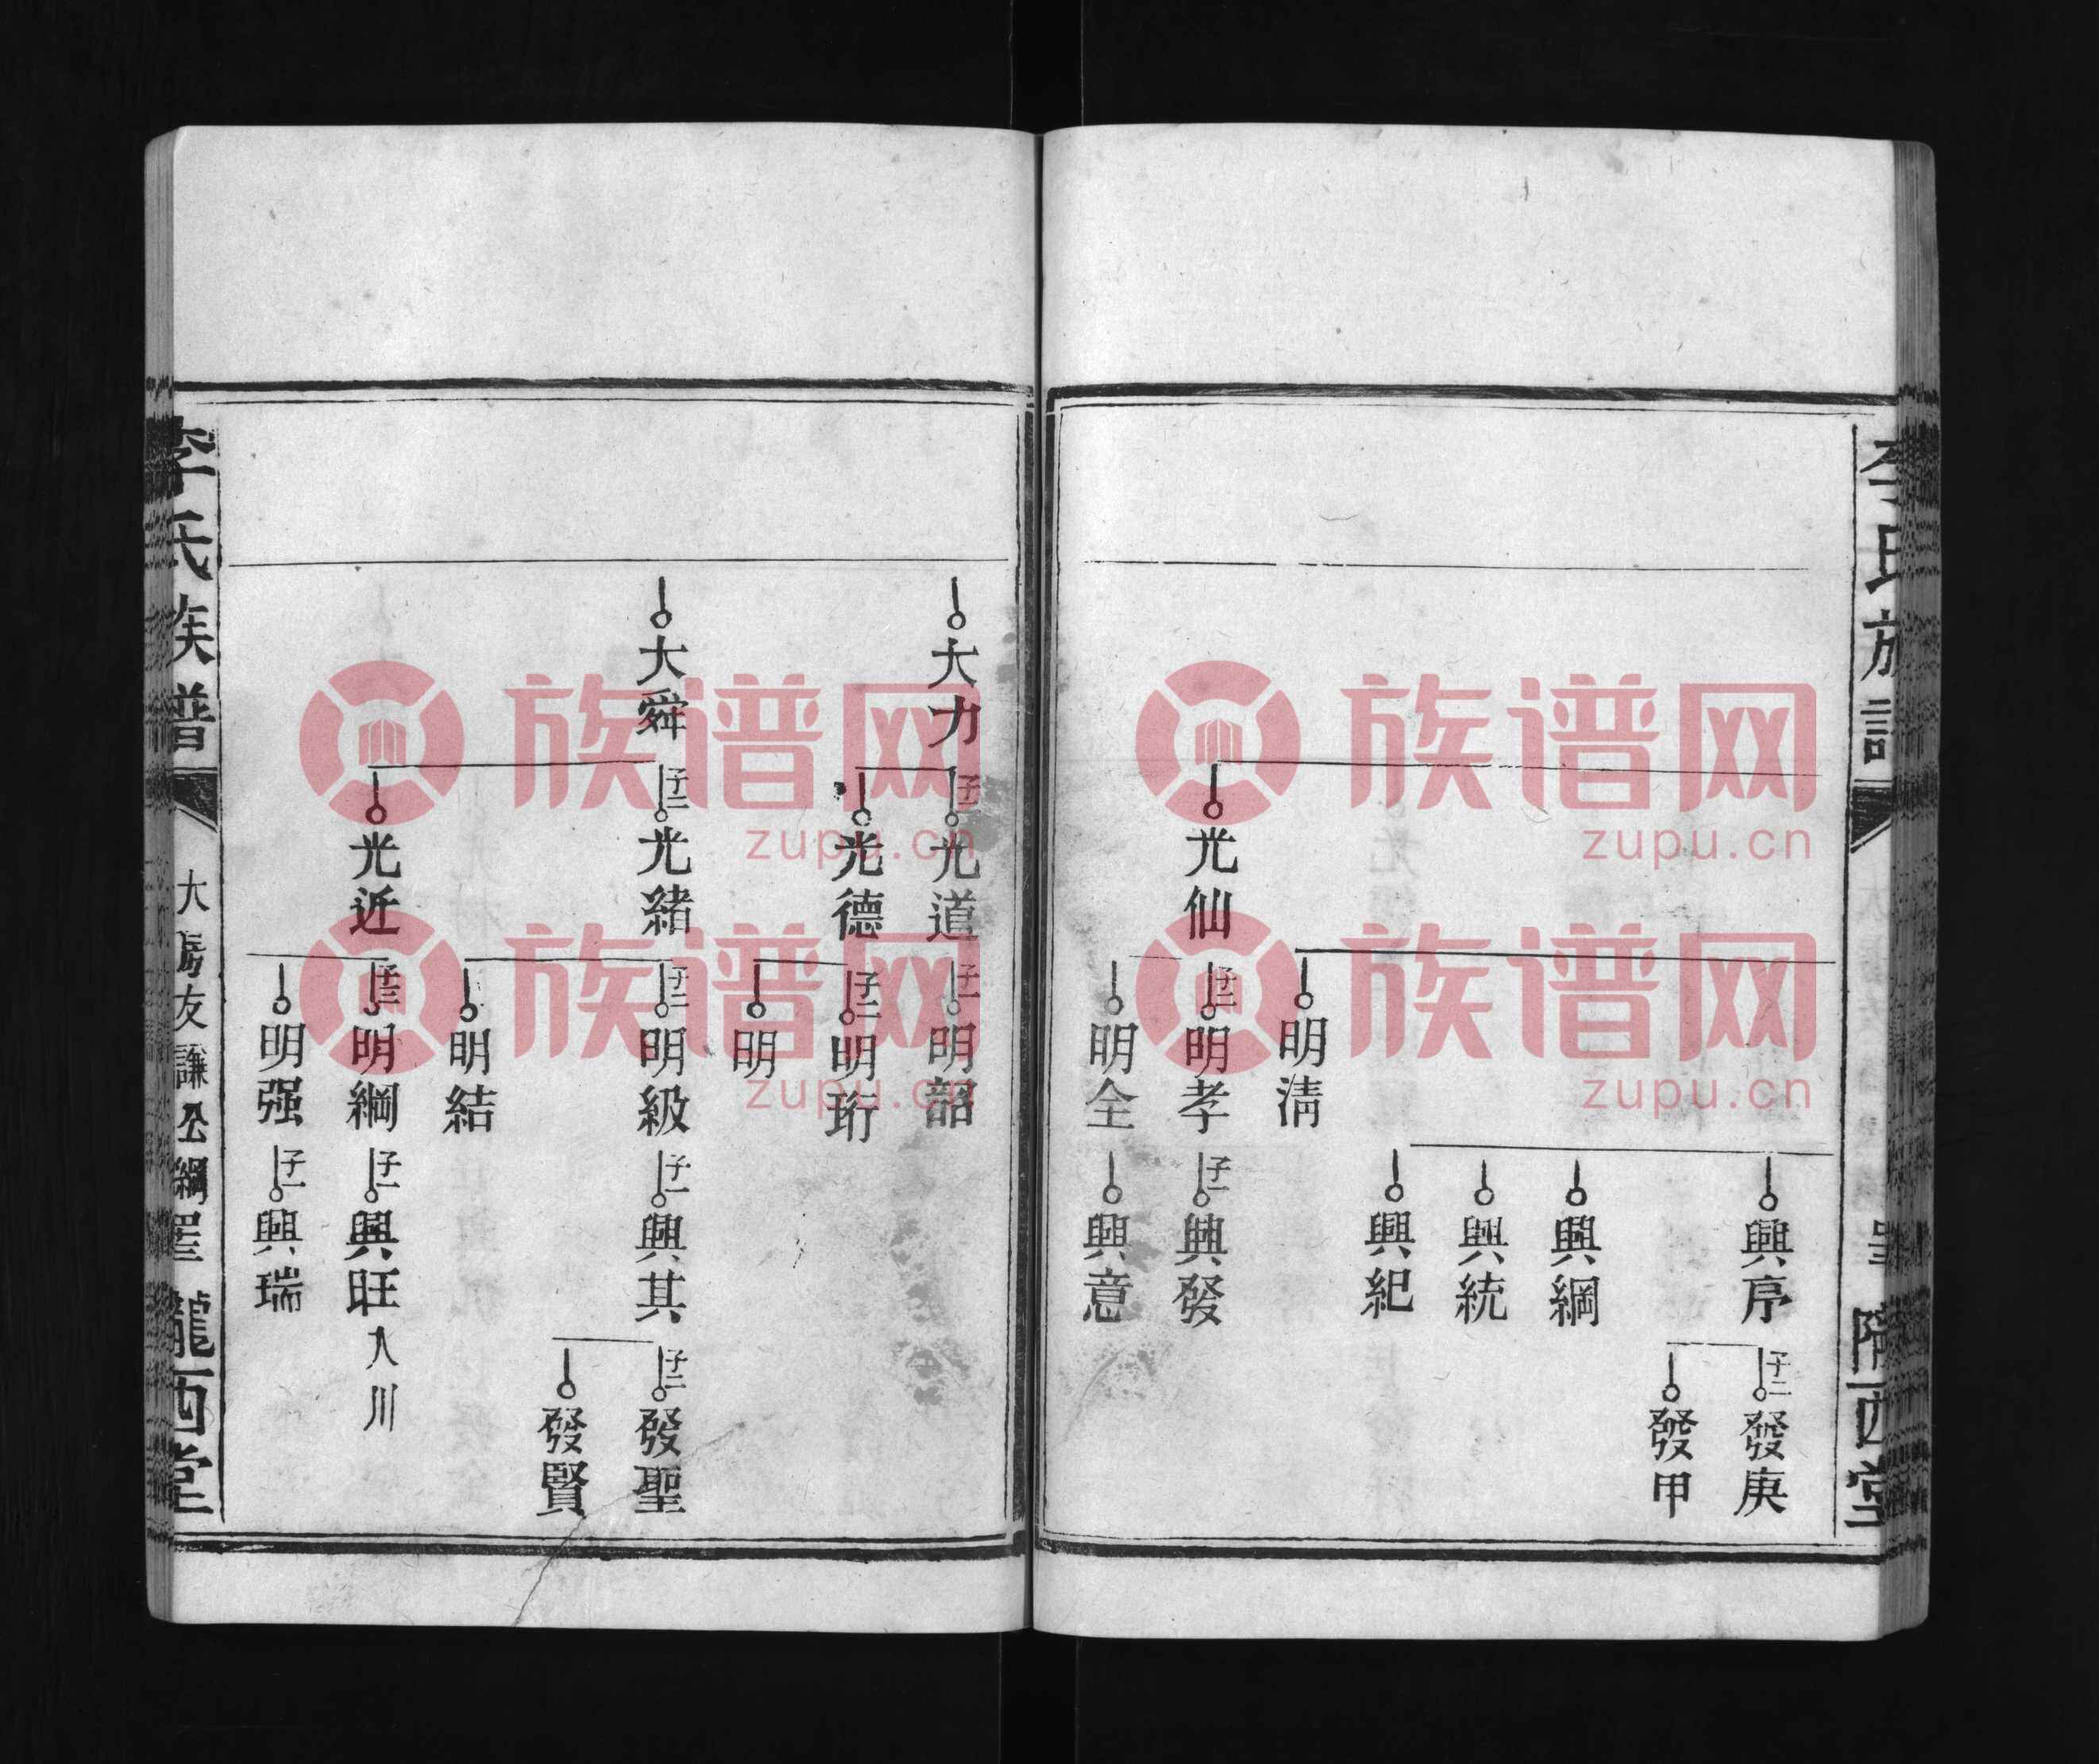 興序
子二
發庚
發甲
興綱
興統
興紀
明淸
光仙
子二
明孝
子一
興發
明全
興意
隴西堂
大力
子二
光道
子一
明韶
光德
子二
明珩
明
大舜
子二
光緒
子二
明級
子一
興其
子二
發聖
發賢
明結
光近
子二
明綱
子一
興旺
入川
明强
子一
興瑞
李氏族譜
大房友謙公綱
隴西堂
族谱网
zupu.cn
族谱网
zupu.cn
族谱网
zupu.cn
族谱网
zupu.cn